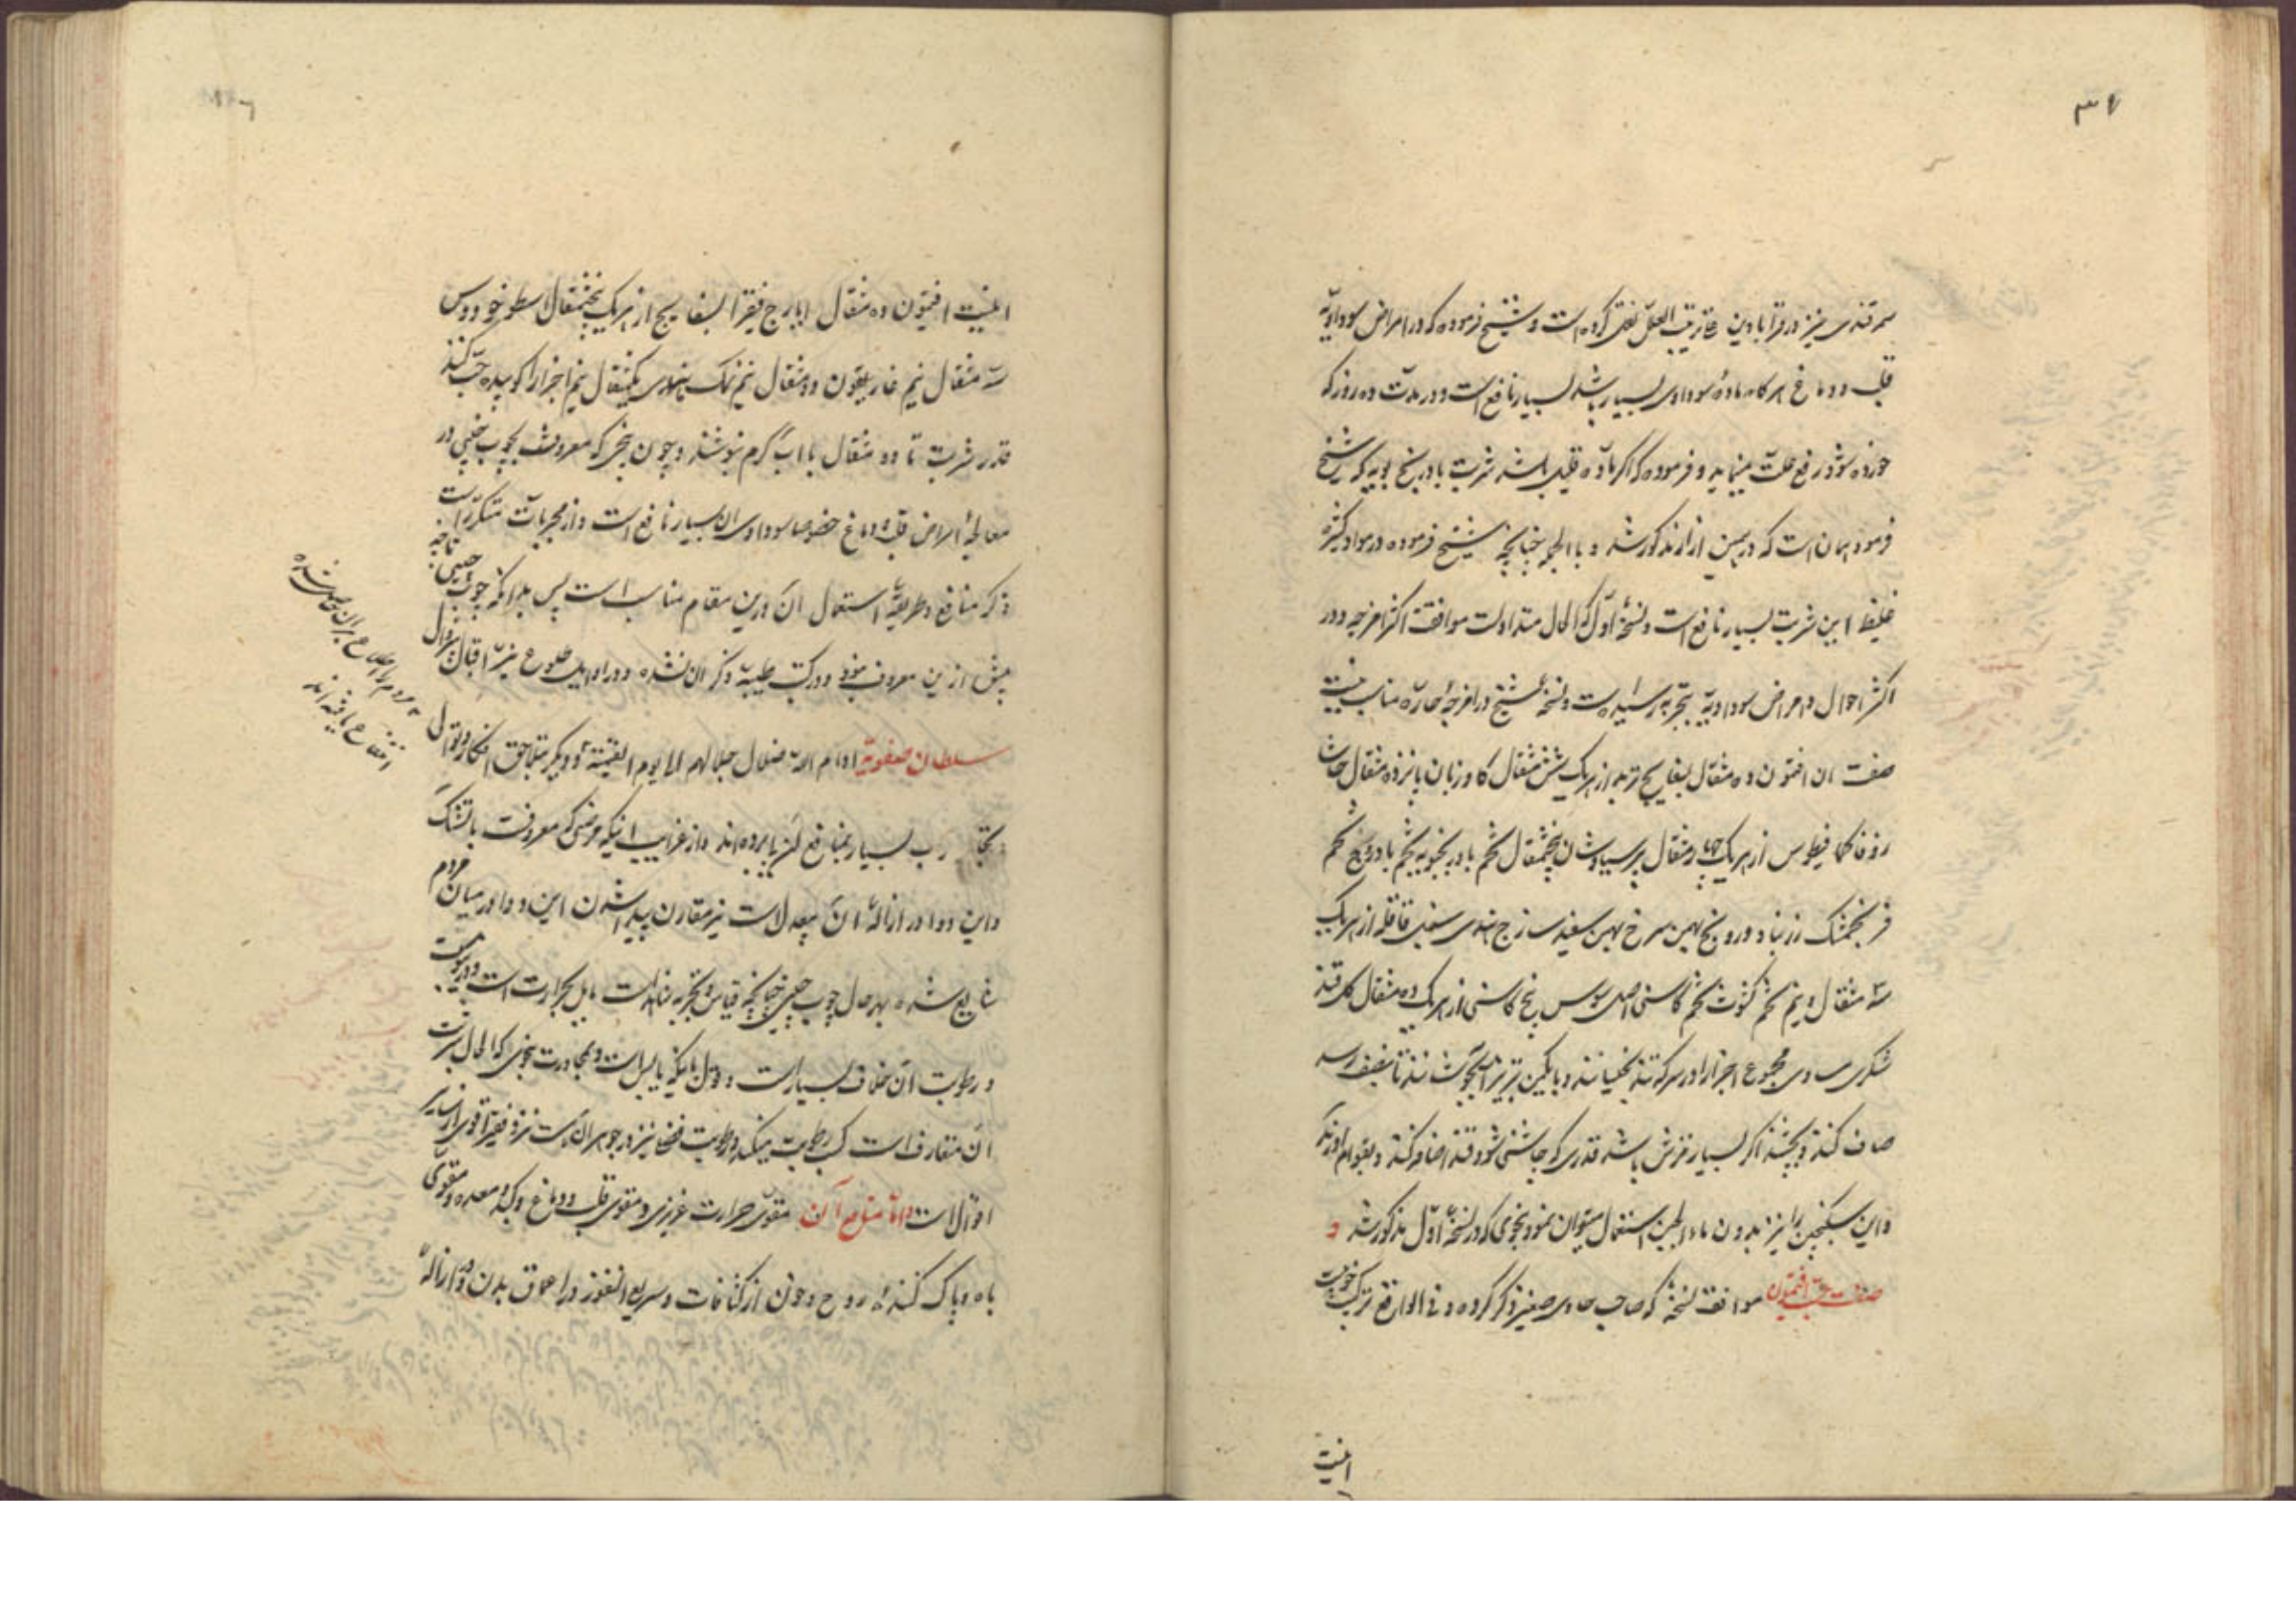 ۳۶
سمرقندی نیز در قرابادین علی ترتیب العلل نقل کرده است و شیخ فرموده که در امراض سوداویه
قلب و دماغ هر گاه ماده سوداوی بسیار باشد بسیار نافع است و در مدت ده روز که
خورده شود رفع علت مینماید و فرموده که اگر ماده قلیل باشد شربت بادرنجبویه که شیخ
فرموده همان است که در مذکور شد و بالجمله چنانچه شیخ فرموده در مواد کثیره
غلیظ این شربت بسیار نافع است و نسخه اول که الحال متداولست موافقت اکثر امزجه و در
اکثر احوال و امراض سوداویه بتجربه رسیده است و نسخه شیخ در امزجه حاره مناسب نیست
صفت ان افتیون ده مثقال بسفایج تربد از هر یک شش مثقال کاوزبان پانزده مثقال حاشا
زوفا کمافیطوس از هر یک چهار مثقال پرسیاوشان پنجمثقال تخم بادرنجبویه تخم بادروج تخم
فرنجمشک زرنباد درونج بهمن سرخ بهمن سفید سازج هندی سنبل قاقله از هر یک
سه مثقال و نیم تخم کشوت تخم کاسنی اصل سوس بیخ کاسنی از هر یک ده مثقال کلقند
شکری مساوی مجموع اجزا را در سرکه تند بخیسانند و باتش بجوشانند تا بنصف رسد
صاف کنند و بچشند اگر بسیار ترش باشد قدری که چاشنی شود قند اضافه کنند و بقوام اورند
و این سکنجبین را نیز بدون ماء الجبن استعمال میتوان نمود بنحوی که در نسخه اول مذکور شد و
صفت حب افتیون موافقت نسخه که صاحب حاوی صغیر ذکر کرده و فی الواقع ترکیب خوبیست
اینست
اینست افتیون ده مثقال ایارج فیقرا بسفایج از هر یک پنجمثقال اسطوخودوس
سه مثقال نیم غاریقون دو مثقال نیم نمک هندی یکمثقال نیم اجزا را کوبیده حب کنند
قدر شربت تا دو مثقال با اب گرم بنوشند و چون بیخی که معروفست بچوب چینی در
معالجه امراض قلب و دماغ خصوصا سوداوی ان بسیار نافع است و از مجربات متکرر است
ذکر منافع و طریقه استعمال ان درین مقام مناسب است پس بدانکه چوب چینی تا چه
پیش ازین معروف نبود و در کتب طبیه ذکر ان نشده و در اوایل طلوع نیر اقبال بیزوال
سلطان صفویه ادام الله ضلال جلالهم الی یوم القیمة و دیگر بتلاحق افکار و توالی
تجارب بسیار بمنافع ان پا برده‌اند و از غرایب اینکه مرضی که معروفست باتشک
و این دوا در ازاله ان بیعدل است نیز مقارن پیدا شدن این دوا در میان مردم
شایع شده بهر حال چوب چینی چنانچه قیاس و تجربه شاهد است مایل بحرارت است و در یبوست
و رطوبت ان خلاف بسیار است و قول بانکه یابس است و بمجاورت بنحوی که الحال شربت
ان متعارف است کسب رطوبت میکند و رطوبت فضلی نیز در جوهر ان است نزد فقیر اقوی از سایر
اقوال است و اما منافع آن مقوی حرارت غریزی و مقوی قلب و دماغ و کبد و معده و مقوی
باه و پاک کننده روح و خون از کثافات و سریع النفوذ در اعماق بدن و در ازاله
مردم را اطلاع بران حاصل شده
انتفاع یافته اند